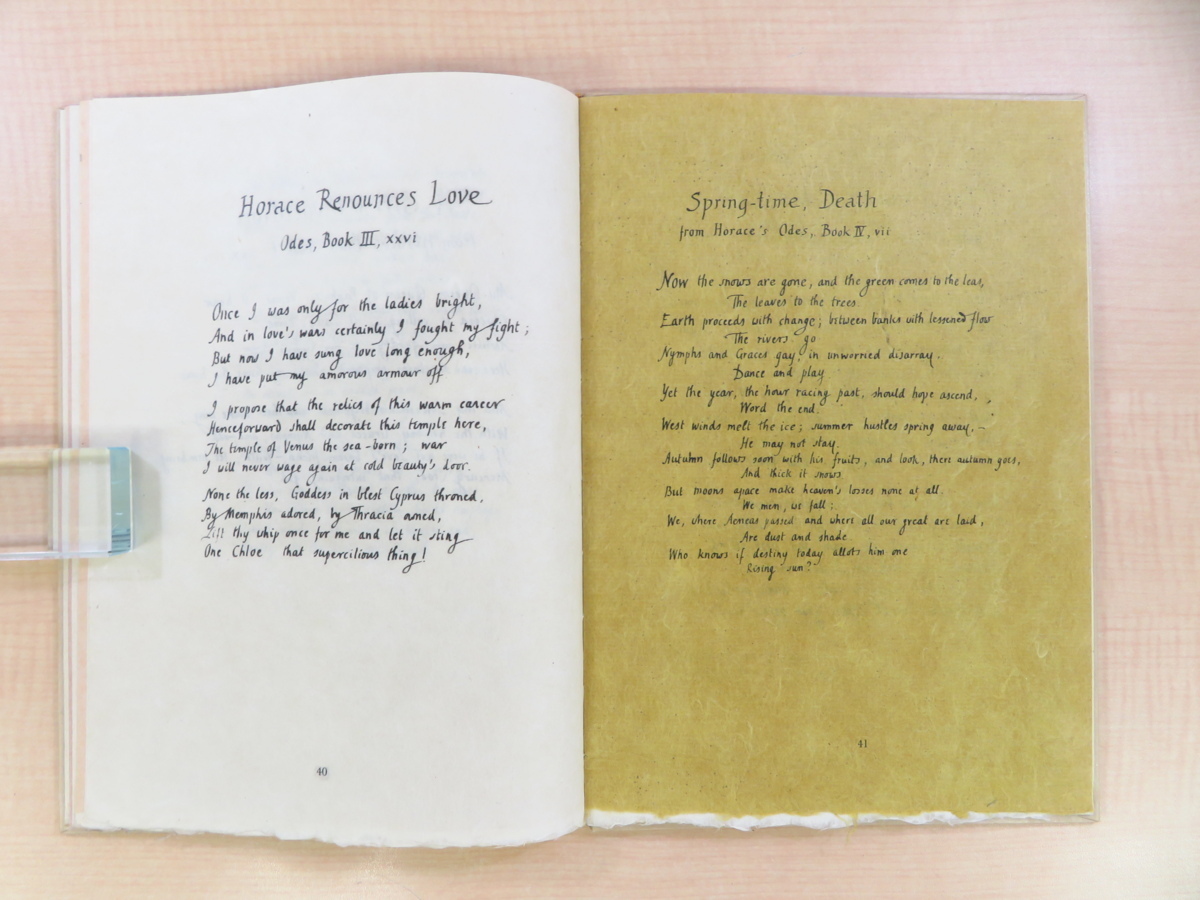 Horace Renounces Love
Odes, Book III, xxvi
Once I was only for the ladies bright,
And in love's wars certainly I fought my fight;
But now I have sung love long enough,
I have put my amorous armour off
I propose that the relics of this warm career
Henceforward shall decorate this temple here,
The temple of Venus the sea-born; war
I will never wage again at cold beauty's door.
None the less, Goddess in blest Cyprus throned,
By Memphis adored, by Thracia owned,
Lift thy whip once for me and let it sting
One Chloe that supercilious thing!
40
Spring-time, Death
from Horace's Odes, Book IV, vii
Now the snows are gone, and the green comes to the leas,
The leaves to the trees
Earth proceeds with change; between banks with lessened flow
The rivers go
Nymphs and Graces gay, in unworried disarray.
Dance and play
Yet the year, the hour racing past, should hope ascend,
Word the end.
West winds melt the ice; summer hustles spring away, –
He may not stay.
Autumn follows soon with his fruits, and look, there autumn goes,
And thick it snows
But moons apace make heaven's losses none at all.
We men, we fall:
We, where Aeneas passed and where all our great are laid,
Are dust and shade
Who knows if destiny today allots him one
Rising sun?
41